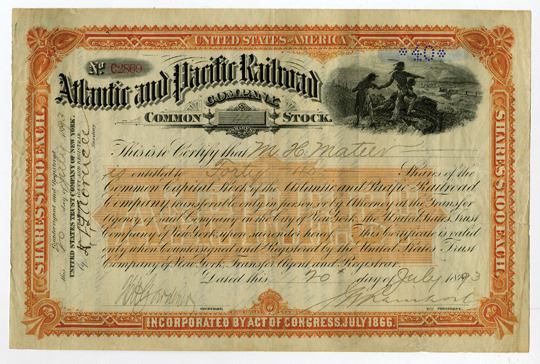 UNITED STATES OF AMERICA
No. C2869
*40*
Atlantic and Pacific Railroad
COMPANY.
COMMON STOCK.
This is to Certify that M H
is entitled to Forty Shares of the
Common Capital Stock of the Atlantic and Pacific Railroad
Company transferable only in person, or by Attorney at the Transfer
Agency of said Company in the City of New York, the United States Trust
Company of New York, upon surrender hereof. This Certificate is valid
only when Countersigned and Registered by the United States Trust
Company of New York, Transfer Agent and Registrar.
Dated this 20th day of July 1893
INCORPORATED BY ACT OF CONGRESS, JULY 1866.
SHARES $100 EACH.
Countersigned and Registered
this 20 day of July 1893
UNITED STATES TRUST COMPANY OF NEW YORK.
By
Secretary
SHARES $100 EACH.